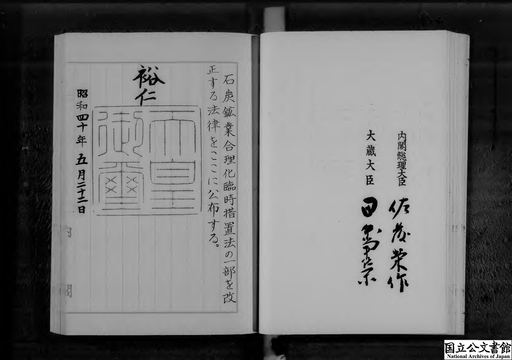 内閣総理大臣 佐藤榮作
大蔵大臣 田中角榮
石炭鉱業合理化臨時措置法の一部を改
正する法律をここに公布する。
裕仁
天皇
御璽
昭和四十年五月二十二日
国立公文書館
National Archives of Japan